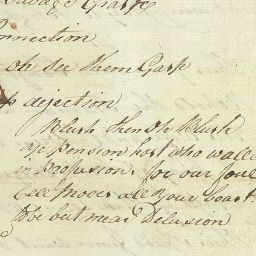 onnection
oh see them Gasp
dejection
Blush then Oh Blush
ye Pension host who wallo
in Profusion, for our foul
Cell proves all your boast
to be but mear Delusion